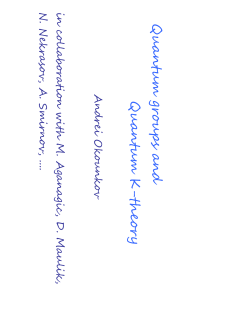 Quantum groups and
Quantum K-theory
Andrei Okounkov
in collaboration with M. Aganagic, D. Maulik,
N. Nekrasov, A. Smirnov, ....